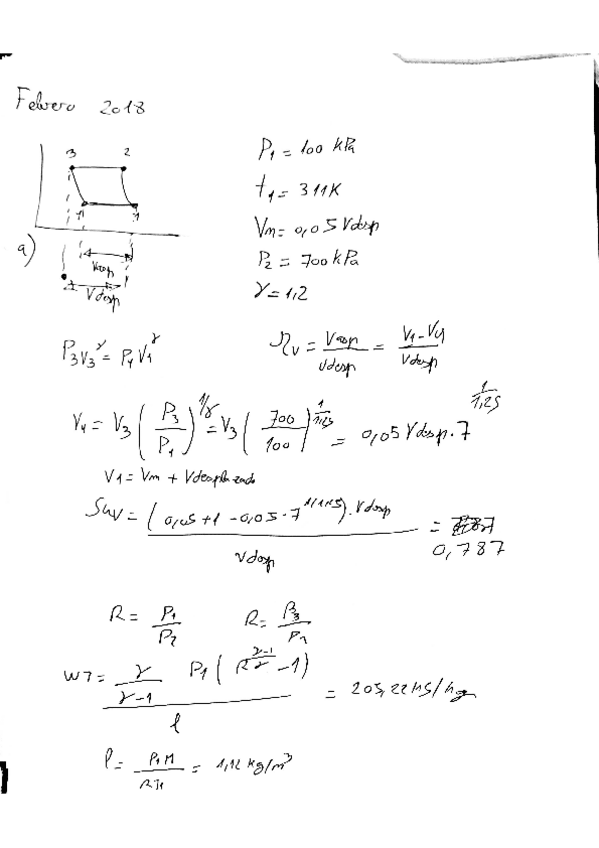 Febrero 2018
3 2
4 1
a)
Vasp
Vdesp
P₁ = 100 kPa
t₁ = 311K
Vm = 0,05 Vdesp
P₂ = 700 kPa
γ = 1,2
P₃V₃^γ = P₄V₄^γ
ηv = Vasp/Vdesp = (V₁-V₄)/Vdesp
V₄ = V₃ (P₃/P₄)^(1/γ) = V₃ (700/100)^(1/1,25) = 0,05 Vdesp · 7^(1/1,25)
V₁ = Vm + Vdesplazado
ηv = (0,05 + 1 - 0,05 · 7^(1/1,25)) · Vdesp / Vdesp = 0,787
R = P₁/P₂ R = P₃/P₂
WT = γ/(γ-1) P₁ (R^((γ-1)/γ) - 1) / ρ = 205,22 kJ/kg
ρ = P₁M/RT₁ = 1,12 kg/m³